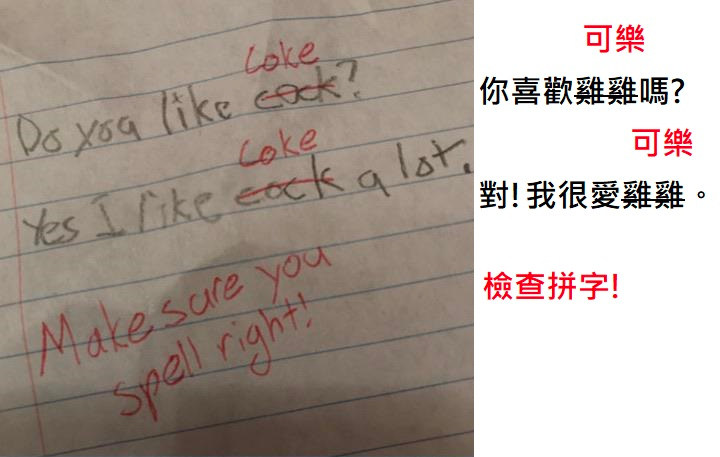 Coke
Do you like cock?
Coke
Yes I like cock a lot.
Make sure you
spell right!
可樂
你喜歡雞雞嗎?
可樂
對! 我很愛雞雞。
檢查拼字!